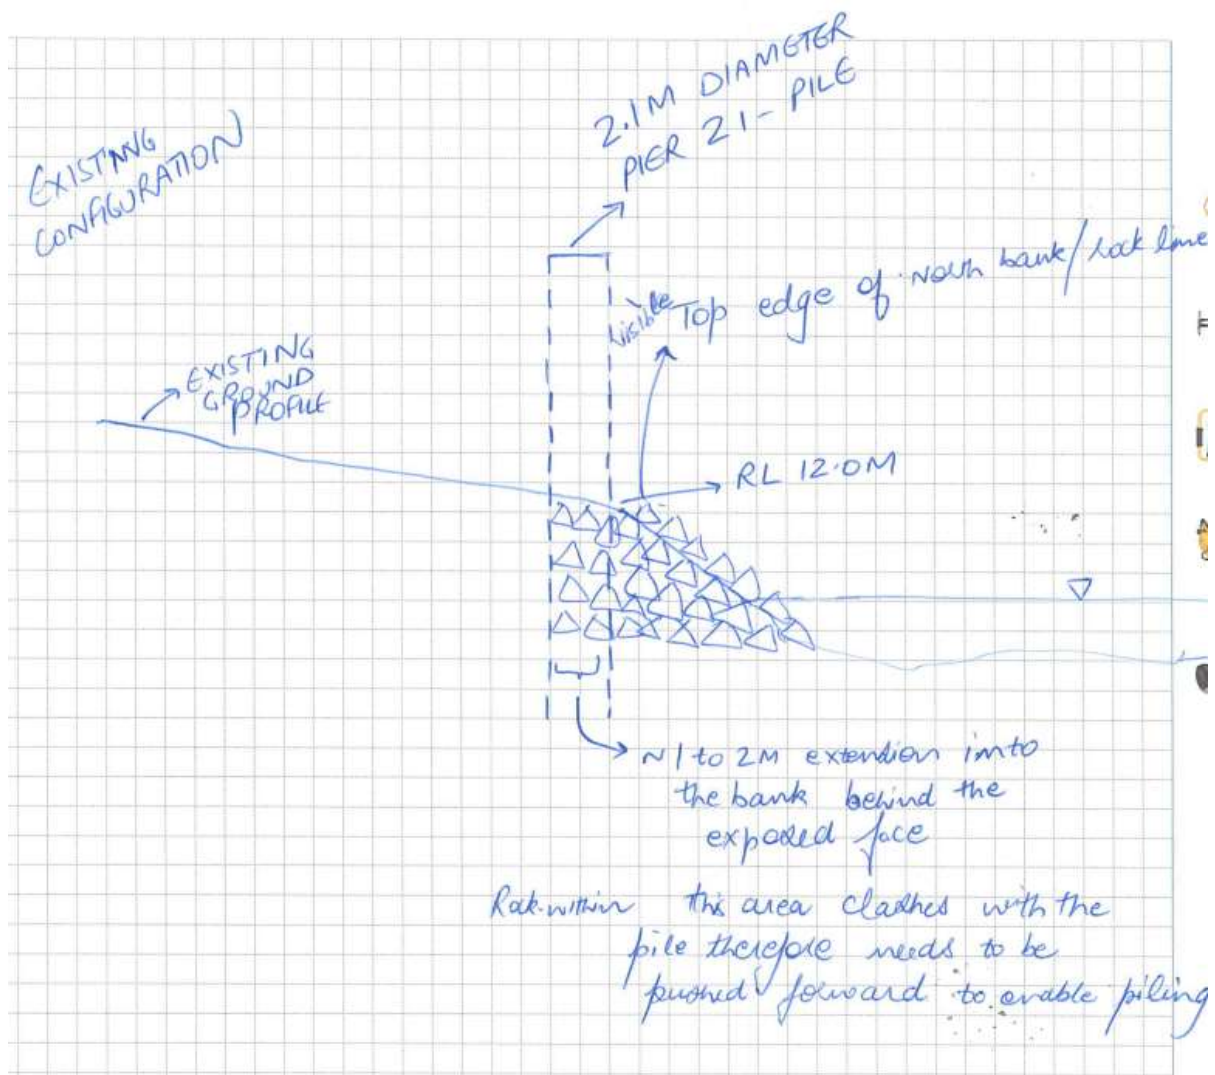 EXISTING
CONFIGURATION
2.1M DIAMETER
PIER 21 - PILE
visible
Top edge of North bank/rock line
EXISTING
GROUND
PROFILE
RL 12.0M
~1 to 2M extension into
the bank behind the
exposed face
Rock within this area clashes with the
pile therefore needs to be
pushed forward to enable piling